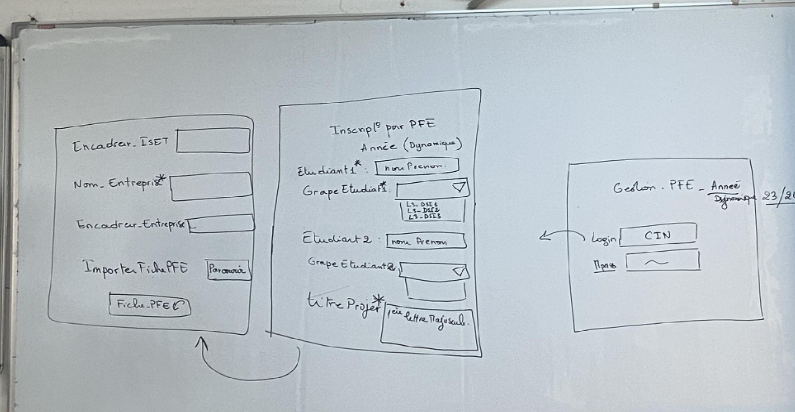 Encadrer_ISET
Nom_Entreprise*
Encadrer_Entreprise
Importer Fiche PFE
Parcourir
Fiche_PFE
Inscript° pour PFE
Année (Dynamique)
Etudiant1* :
nom Prenom
Grape Etudiant*
L3-DSI1
L3-DSI2
L3-DSI3
Etudiant 2 :
nom Prenom
Grape Etudiant2
titre Projet*
1ère lettre Majuscule.
Gestion - PFE _ Année
Dynamique
23/2
Login
CIN